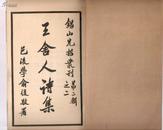 錫山先哲叢刊
之二
王舍人詩集
邑後學俞復敬署